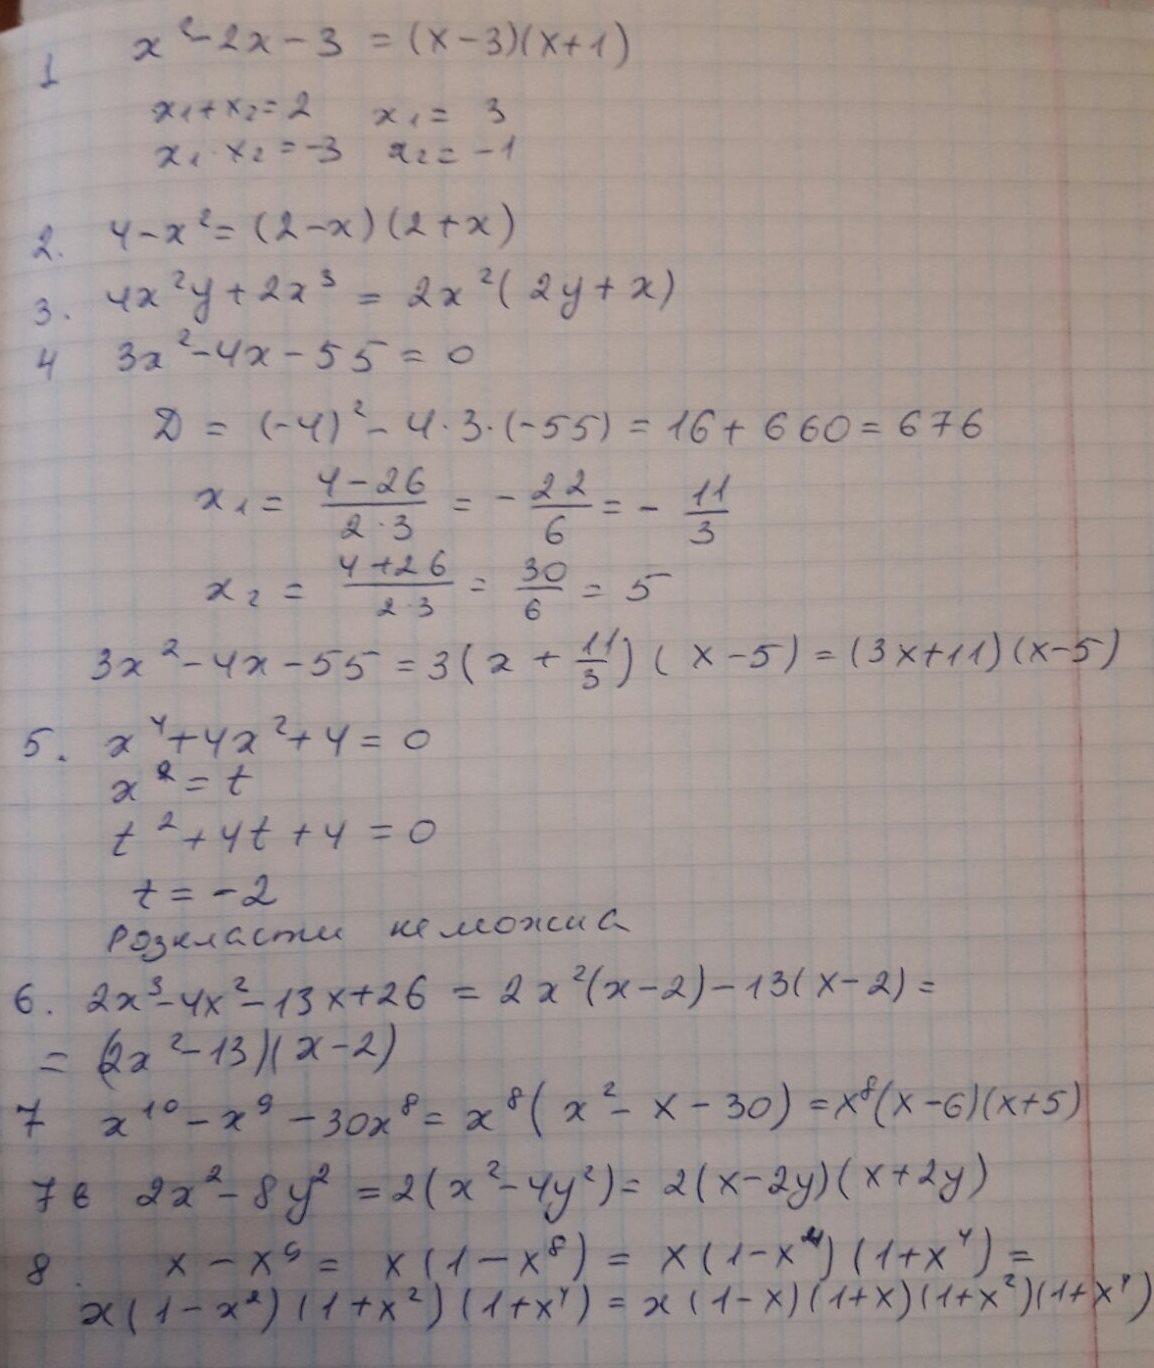 1 x² - 2x - 3 = (x-3)(x+1)
x₁+x₂=2 x₁ = 3
x₁·x₂ = -3 x₂ = -1
2. 4-x² = (2-x)(2+x)
3. 4x²y + 2x³ = 2x²(2y+x)
4 3x² - 4x - 55 = 0
D = (-4)² - 4·3·(-55) = 16 + 660 = 676
x₁ = (4-26)/(2·3) = -22/6 = -11/3
x₂ = (4+26)/(2·3) = 30/6 = 5
3x² - 4x - 55 = 3(x + 11/3)(x-5) = (3x+11)(x-5)
5. x⁴+4x²+4 = 0
x² = t
t²+4t+4 = 0
t = -2
Розкласти не можна
6. 2x³-4x²-13x+26 = 2x²(x-2)-13(x-2) =
= (2x²-13)(x-2)
7 x¹⁰ - x⁹ - 30x⁸ = x⁸(x² - x - 30) = x⁸(x-6)(x+5)
7в 2x² - 8y² = 2(x²-4y²) = 2(x-2y)(x+2y)
8. x - x⁹ = x(1-x⁸) = x(1-x⁴)(1+x⁴) =
x(1-x²)(1+x²)(1+x⁴) = x(1-x)(1+x)(1+x²)(1+x⁴)